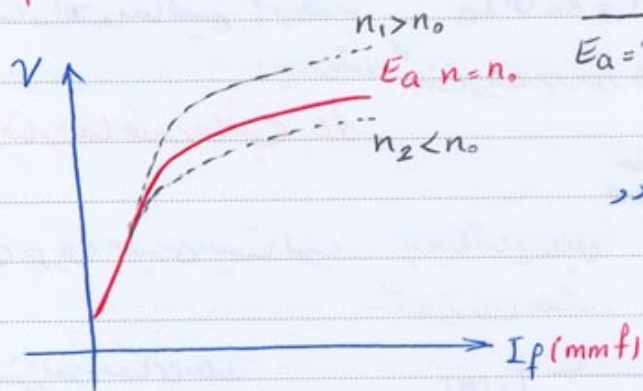 n₁>n₀
Eₐ =
V
Eₐ n=n₀
n₂<n₀
I𝑓(mmf)